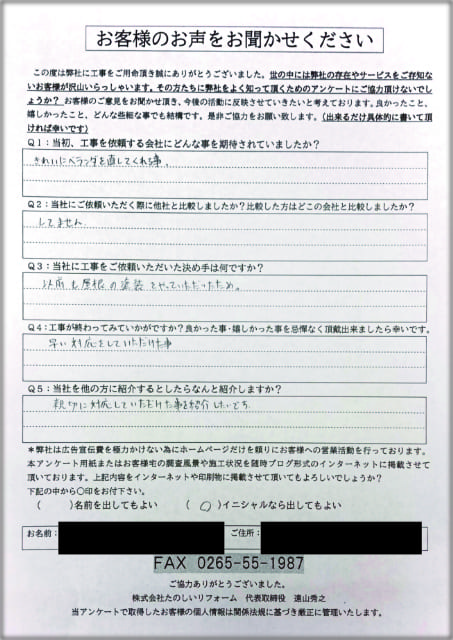 お客様のお声をお聞かせください
この度は弊社に工事をご用命頂き誠にありがとうございました。世の中には弊社の存在やサービスをご存知な
いお客様が沢山いらっしゃいます。その方たちに弊社をよく知って頂くためのアンケートにご協力頂けないでし
ょうか？ お客様のご意見をお聞かせ頂き、今後の活動に反映させていきたいと考えております。良かったこと、
嬉しかったこと、どんな些細な事でも結構です。是非ご協力をお願い致します。（出来るだけ具体的に書いて頂
ければ幸いです）
Q１：当初、工事を依頼する会社にどんな事を期待されていましたか？
きれいにベランダを直してくれる事。
Q２：当社にご依頼いただく際に他社と比較しましたか？比較した方はどこの会社と比較しましたか？
してません。
Q３：当社に工事をご依頼いただいた決め手は何ですか？
以前も屋根の塗装をやっていただったため。
Q４：工事が終わってみていかがですか？良かった事・嬉しかった事を忌憚なく頂戴出来ましたら幸いです。
早い対応をしていただけた事
Q５：当社を他の方に紹介するとしたらなんと紹介しますか？
親切に対応していただけた事を紹介したいです
＊弊社は広告宣伝費を極力かけない為にホームページだけを頼りにお客様への営業活動を行っております。
本アンケート用紙またはお客様宅の調査風景や施工状況を随時ブログ形式のインターネットに掲載させて
頂いております。上記内容をインターネットや印刷物に掲載させて頂いてもよろしいでしょうか？
下記の中から〇印をお付下さい。
（　　）名前を出してもよい　　（ 〇 ）イニシャルなら出してもよい
お名前：　　ご住所：
FAX 0265-55-1987
ご協力ありがとうございました。
株式会社たのしいリフォーム　代表取締役　遠山秀之
当アンケートで取得したお客様の個人情報は関係法規に基づき厳正に管理いたします。